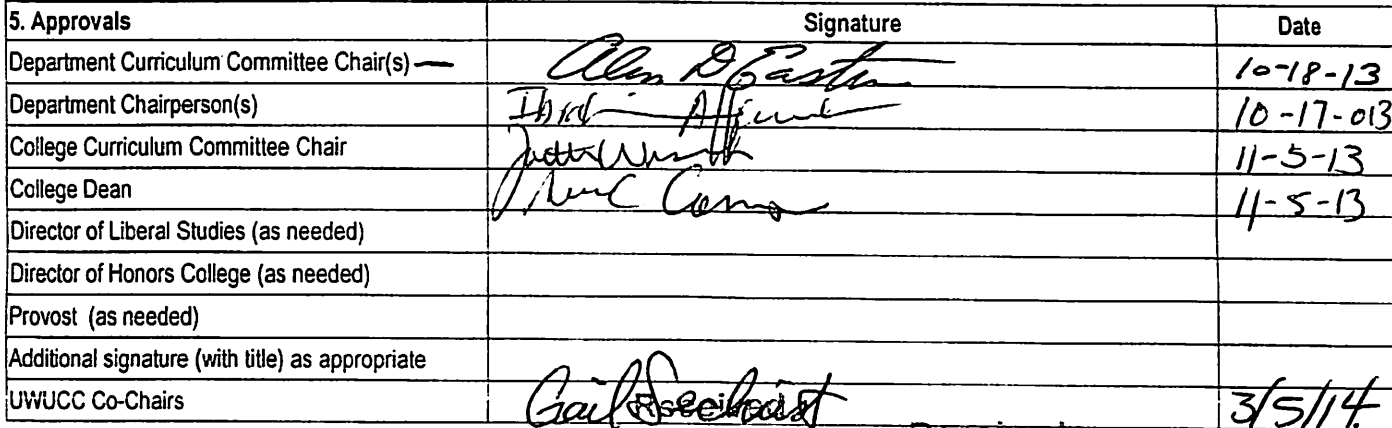 5. Approvals Signature Date
Department Curriculum Committee Chair(s) — 10-18-13
Department Chairperson(s) 10-17-013
College Curriculum Committee Chair 11-5-13
College Dean 11-5-13
Director of Liberal Studies (as needed)
Director of Honors College (as needed)
Provost (as needed)
Additional signature (with title) as appropriate
UWUCC Co-Chairs Gail Sechrist 3/5/14.